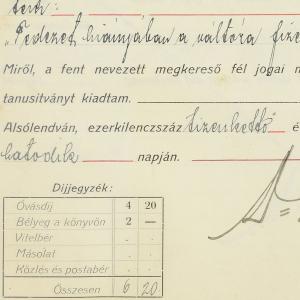 „Fedezet hiányjában a váltóra fize
Miről, a fent nevezett megkereső fél jogai m
tanusitványt kiadtam.
Alsólendván, ezerkilenczszáz tizenkettő é
hatodik napján.
Dijjegyzék:
Óvásdij 4 20
Bélyeg a könyvön 2 —
Vitelbér . .
Másolat . .
Közlés és postabér . .
Összesen 6 20